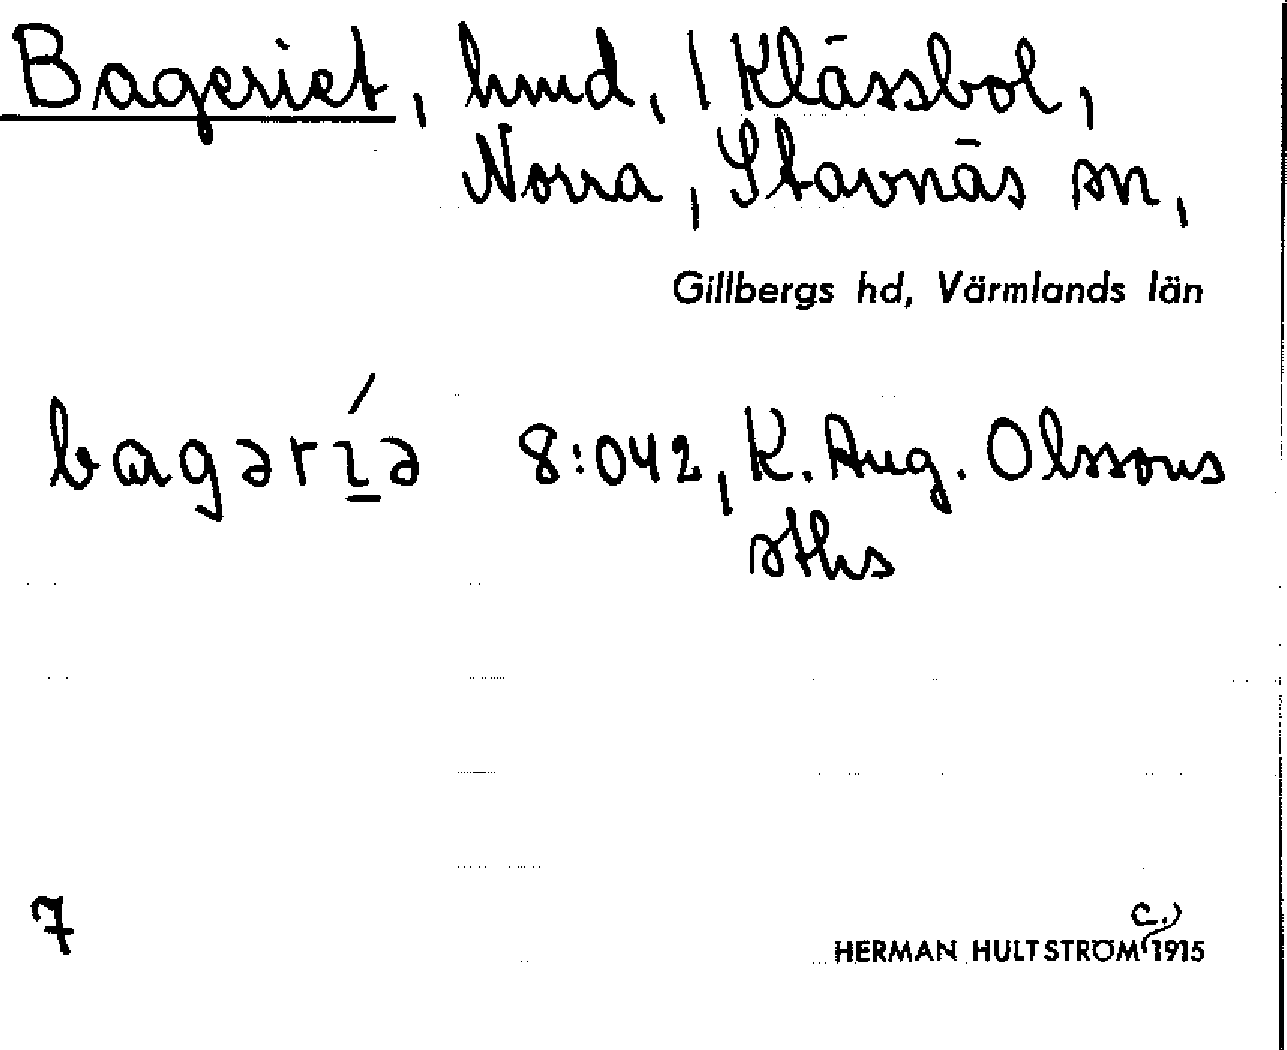 Bageriet, hmd, / Klässbol,
Norra, Stavnäs sn,
Gillbergs hd, Värmlands län
bagərí̱ə 8:042, K. Aug. Olssons
sths
7
c.)
HERMAN HULTSTRÖM 1915